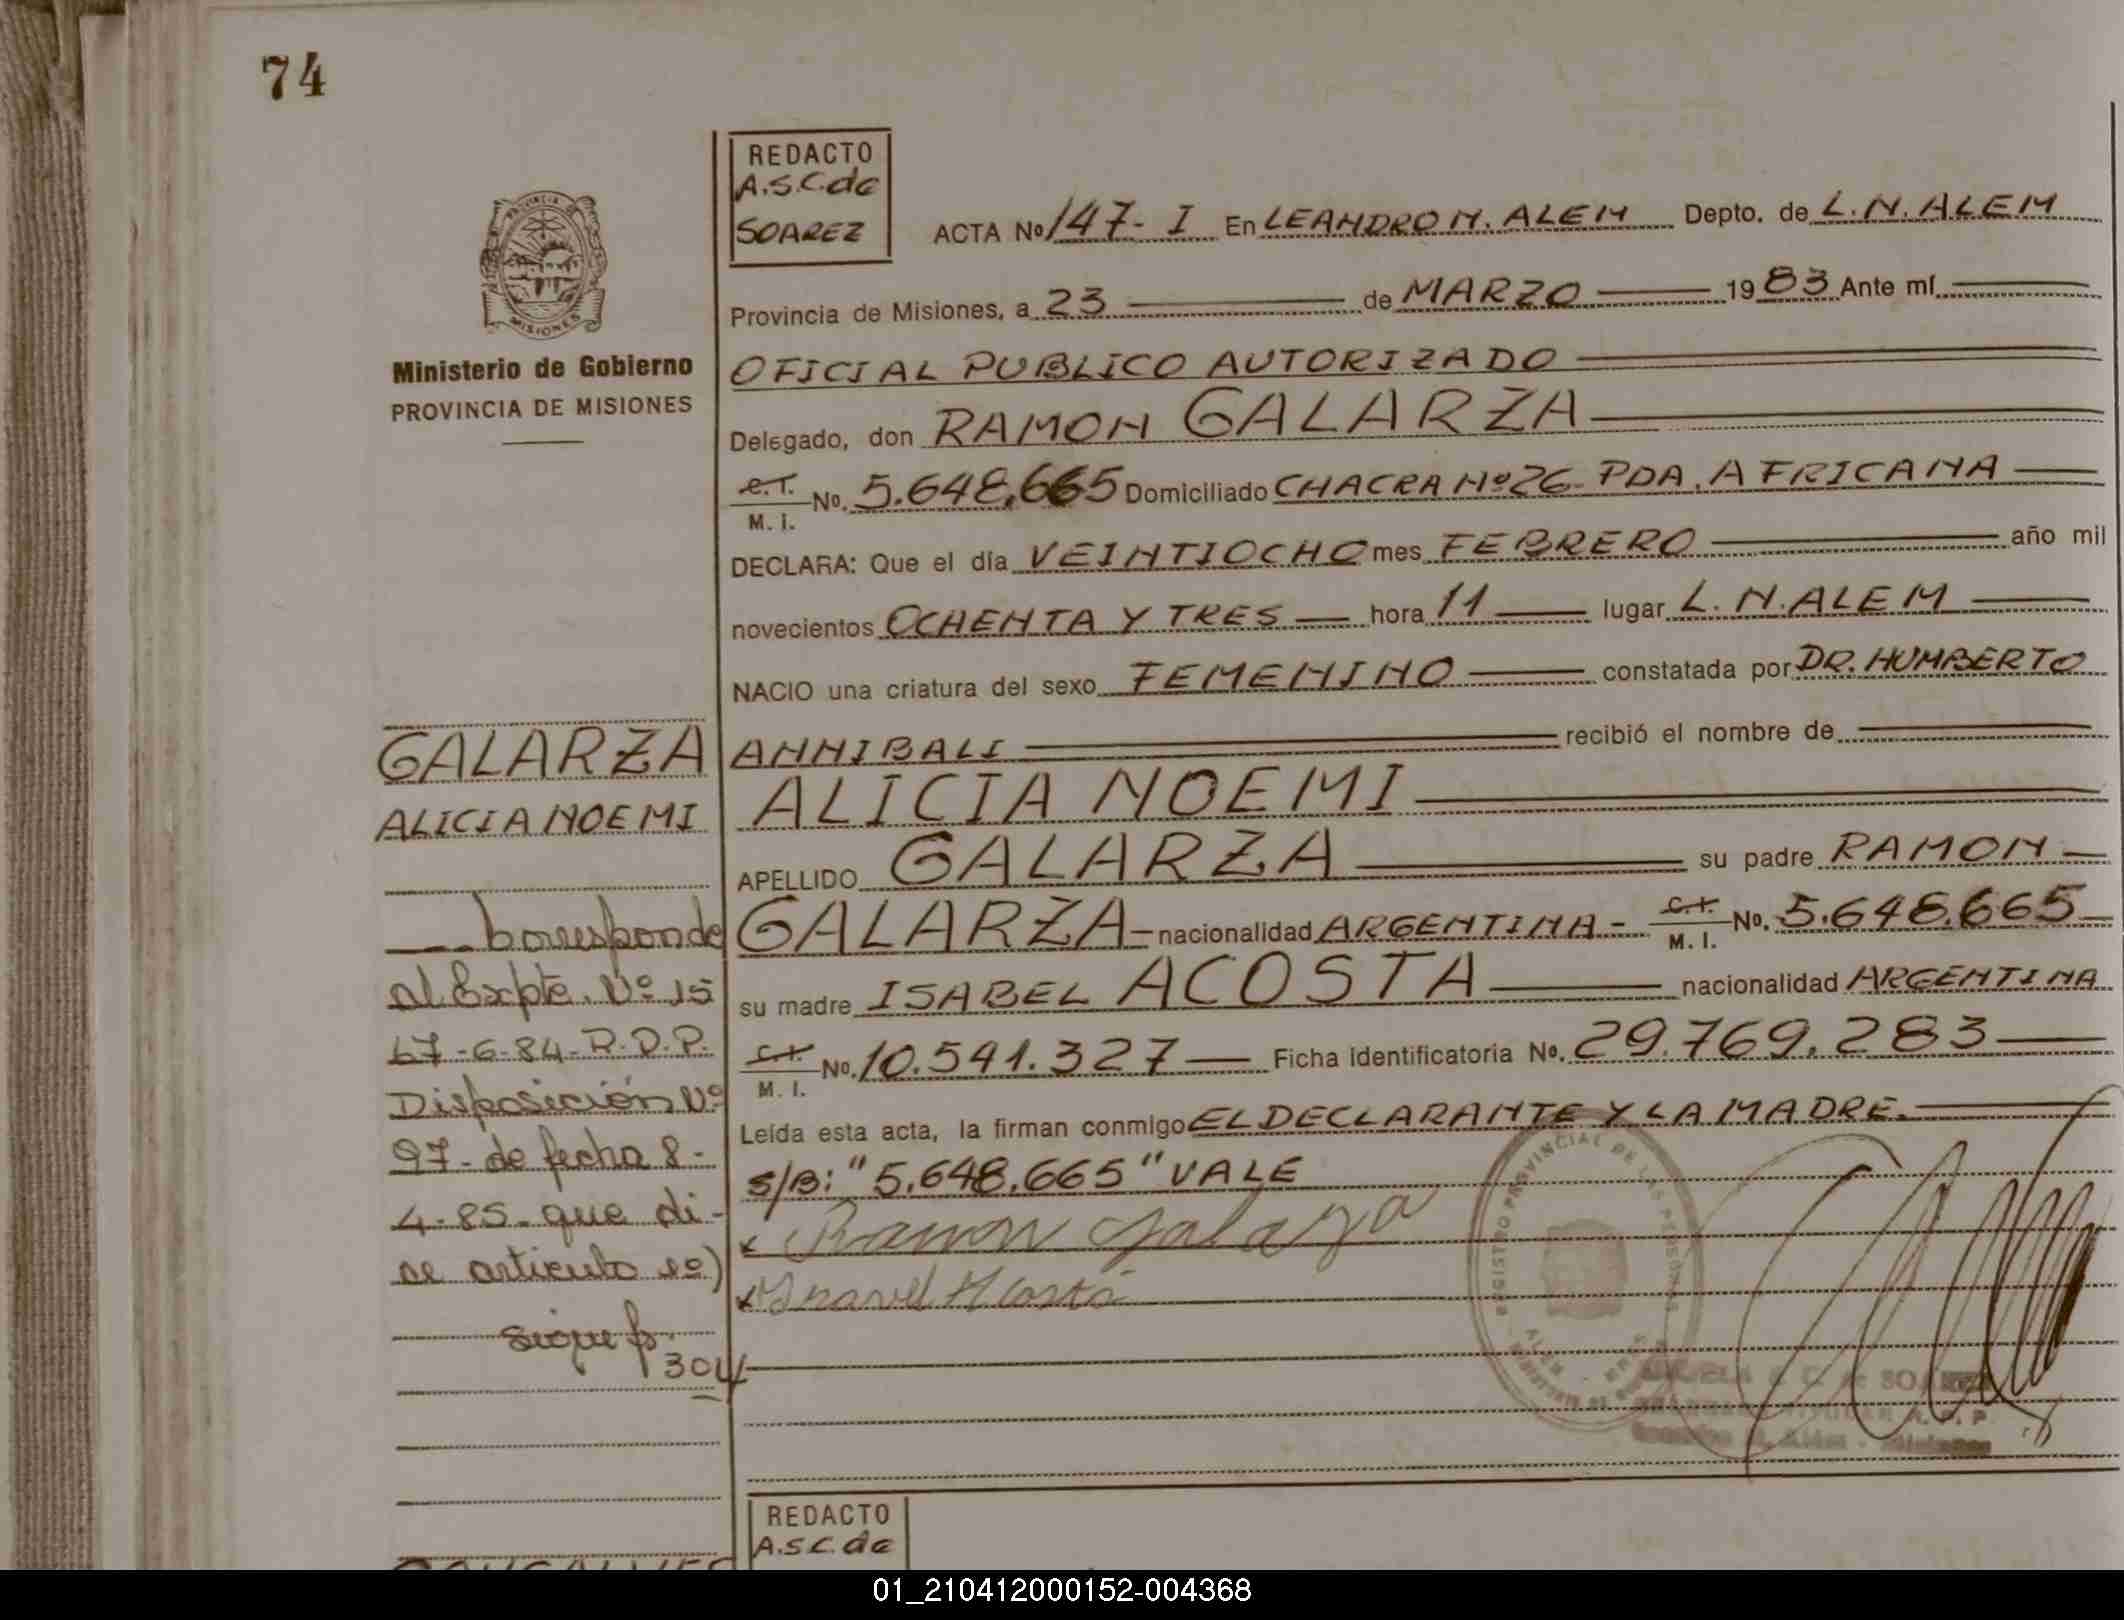 74
REDACTO
A.S.C. de
SOAREZ
ACTA Nº 147- I En LEANDRO N. ALEM Depto. de L. N. ALEM
PROVINCIA DE
MISIONES
Provincia de Misiones, a 23 de MARZO 1983 Ante mí
Ministerio de Gobierno
PROVINCIA DE MISIONES
OFICIAL PUBLICO AUTORIZADO
Delegado, don RAMON GALARZA
C.I. M. I. No. 5.648.665 Domiciliado CHACRA Nº 26- PDA. AFRICANA
DECLARA: Que el día VEINTIOCHO mes FEBRERO año mil
novecientos OCHENTA Y TRES hora 11 lugar L. N. ALEM
NACIO una criatura del sexo FEMENINO constatada por DR. HUMBERTO
ANNIBALI recibió el nombre de
ALICIA NOEMI
APELLIDO GALARZA su padre RAMON
GALARZA nacionalidad ARGENTINA - C.I. M. I. No. 5.648.665
su madre ISABEL ACOSTA nacionalidad ARGENTINA
C.I. M. I. No. 10.541.327 Ficha identificatoria No. 29.769.283
Leída esta acta, la firman conmigo EL DECLARANTE Y LA MADRE.
S/B: "5.648.665" VALE
x Ramon Galarza
x Ysavel Acosta
GALARZA
ALICIA NOEMI
Corresponde
al Expte. Nº 15
67-6-84-R.D.P.
Disposición Nº
97- de fecha 8-
4-85- que di-
ce articulo 1º)
sigue fs.
304
REGISTRO PROVINCIAL DE LAS PERSONAS
C. de SOAREZ
REDACTO
A.S.C. de
01_210412000152-004368